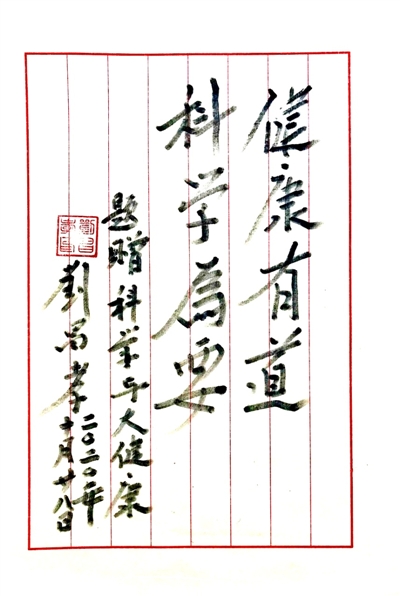 健康有道
科学為要
题赠科学与大健康
劉昌孝
二〇二〇年
十月廿八日